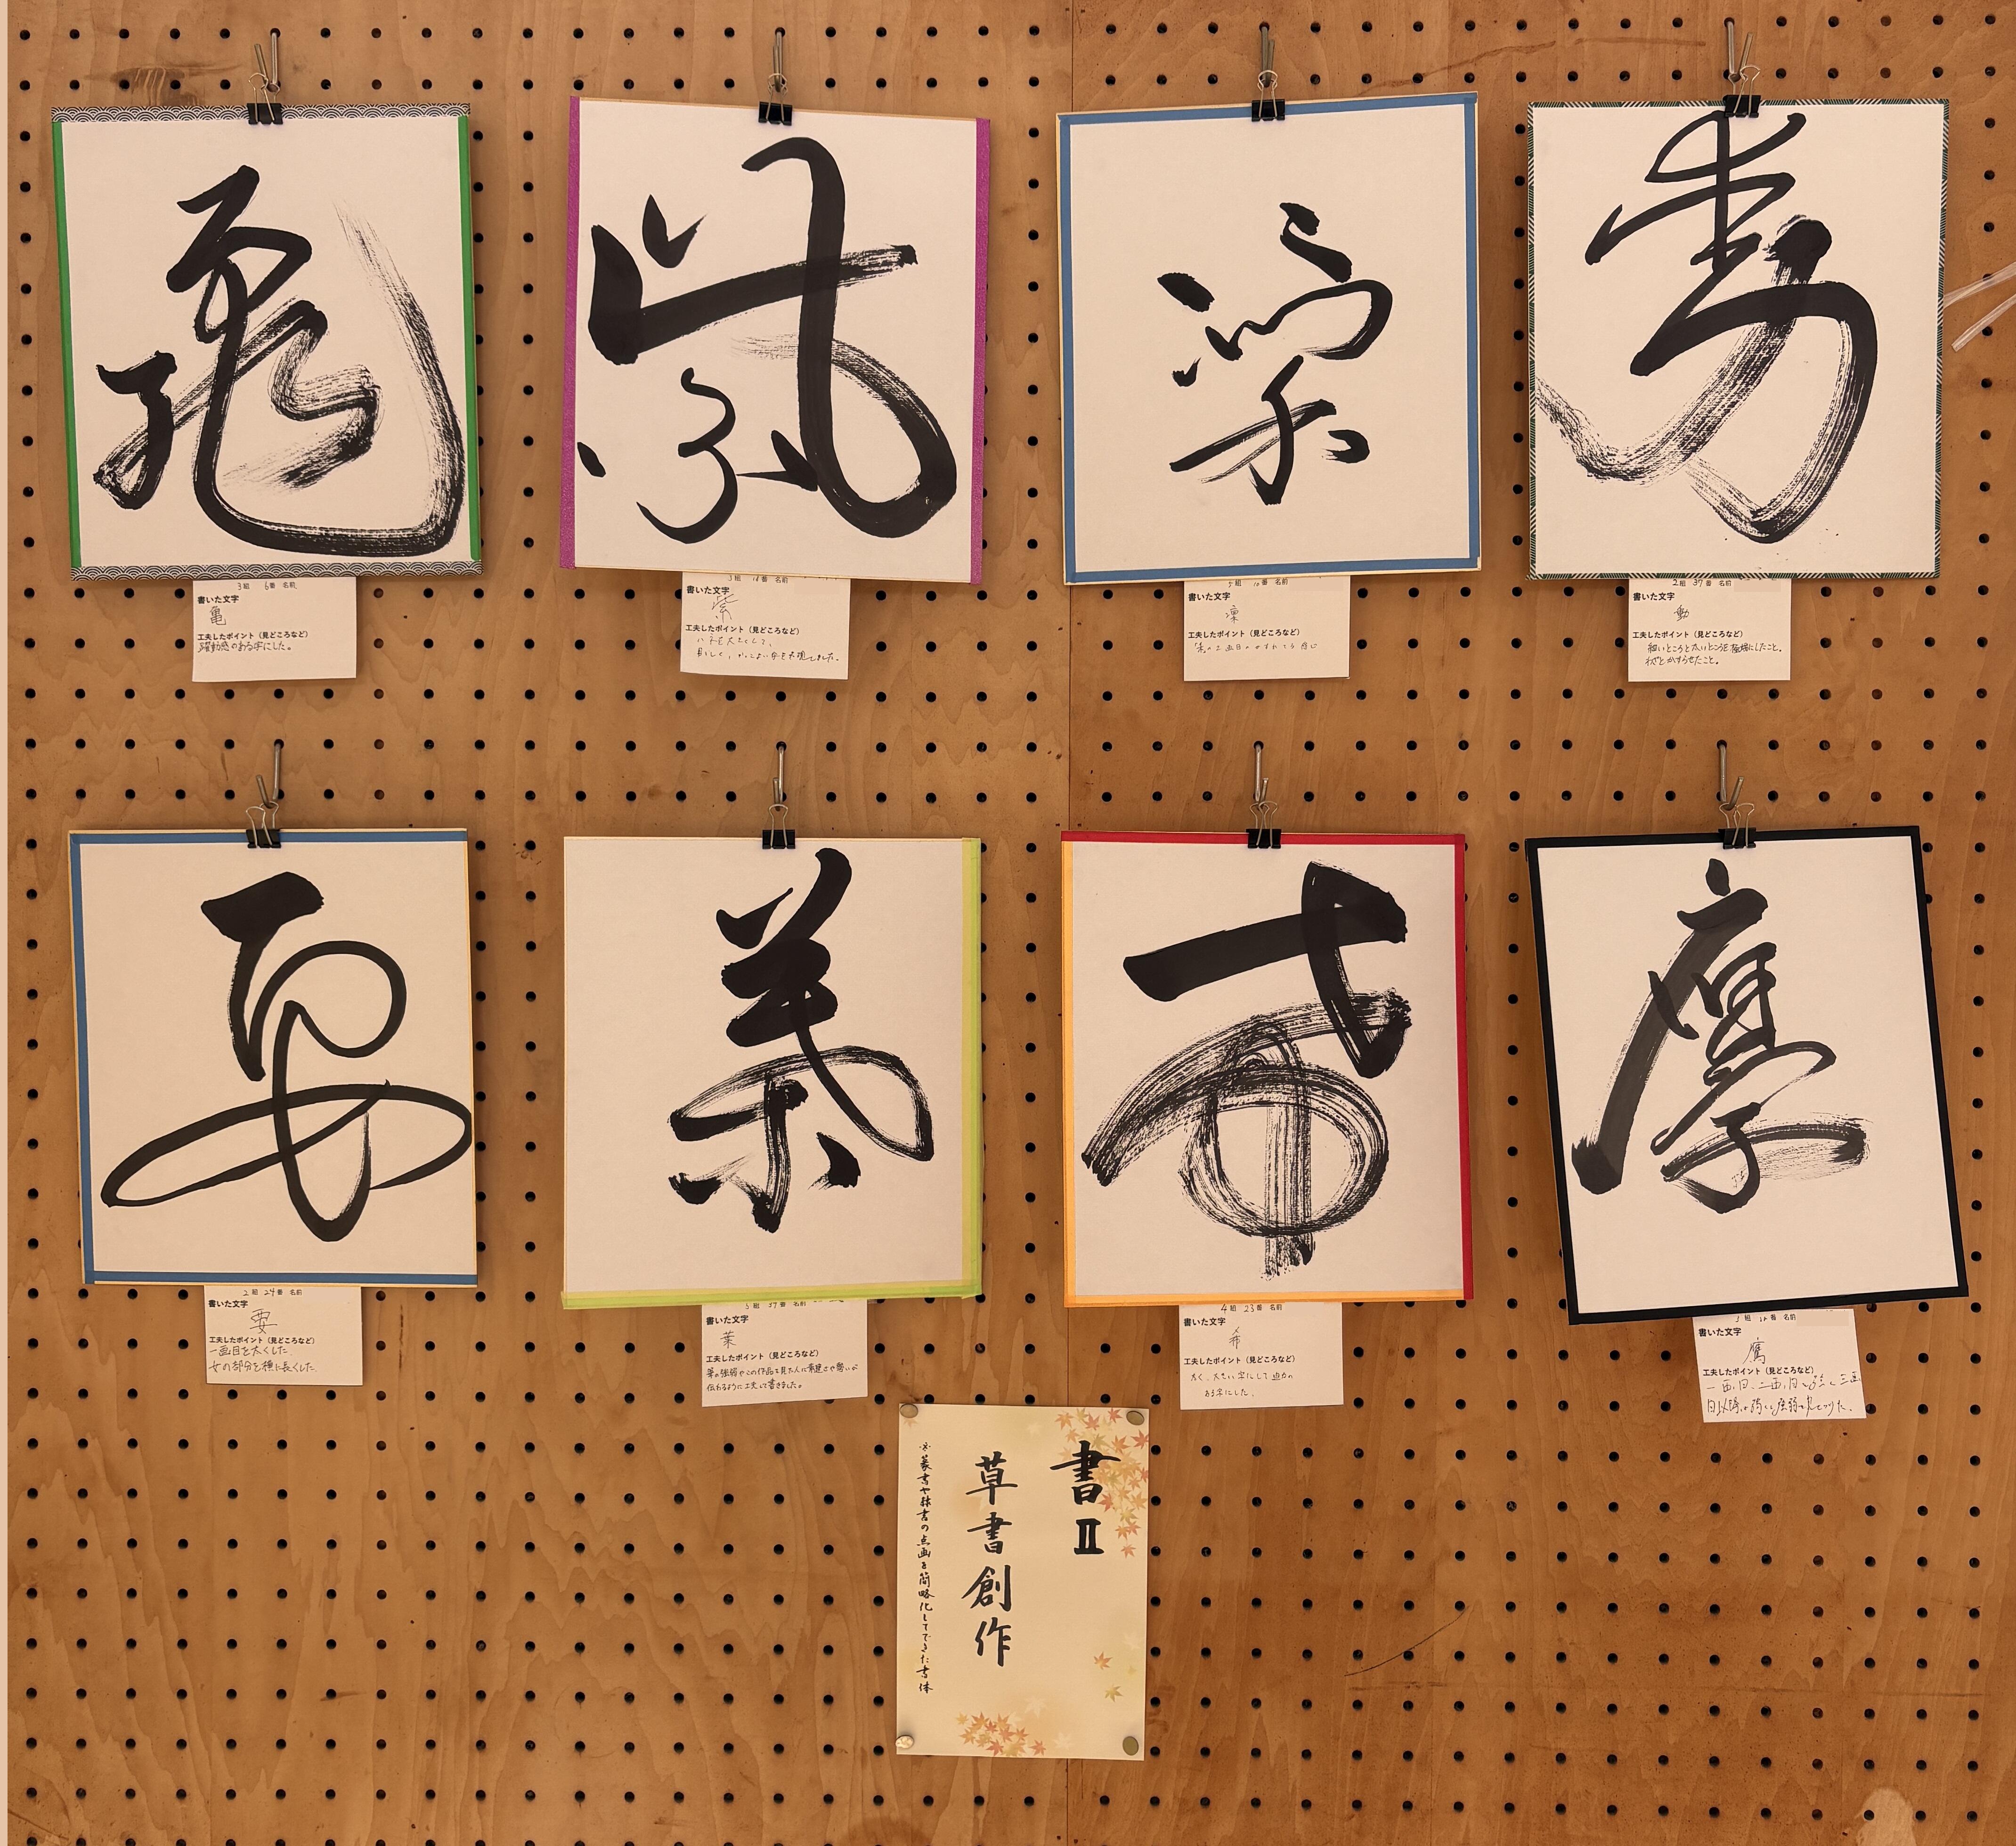 亀
3組 6番 名前
書いた文字
亀
工夫したポイント(見どころなど)
躍動感のある字にした。
紫
3組 18番 名前
書いた文字
紫
工夫したポイント(見どころなど)
凜
5組 10番 名前
書いた文字
凜
工夫したポイント(見どころなど)
動
2組 37番 名前
書いた文字
動
工夫したポイント(見どころなど)
細いところと太いところを極端にしたこと。
わざとかすらせたこと。
要
2組 24番 名前
書いた文字
要
工夫したポイント(見どころなど)
一画目を太くした。
女の部分を横に長くした。
葉
5組 39番 名前
書いた文字
葉
工夫したポイント(見どころなど)
伝わるように工夫して書きました。
希
4組 23番 名前
書いた文字
希
工夫したポイント(見どころなど)
太く、大きい字にして迫力の
ある字にした。
鷹
書いた文字
鷹
工夫したポイント(見どころなど)
書Ⅱ
草書創作
※篆書や隷書の点画を簡略化してできた書体